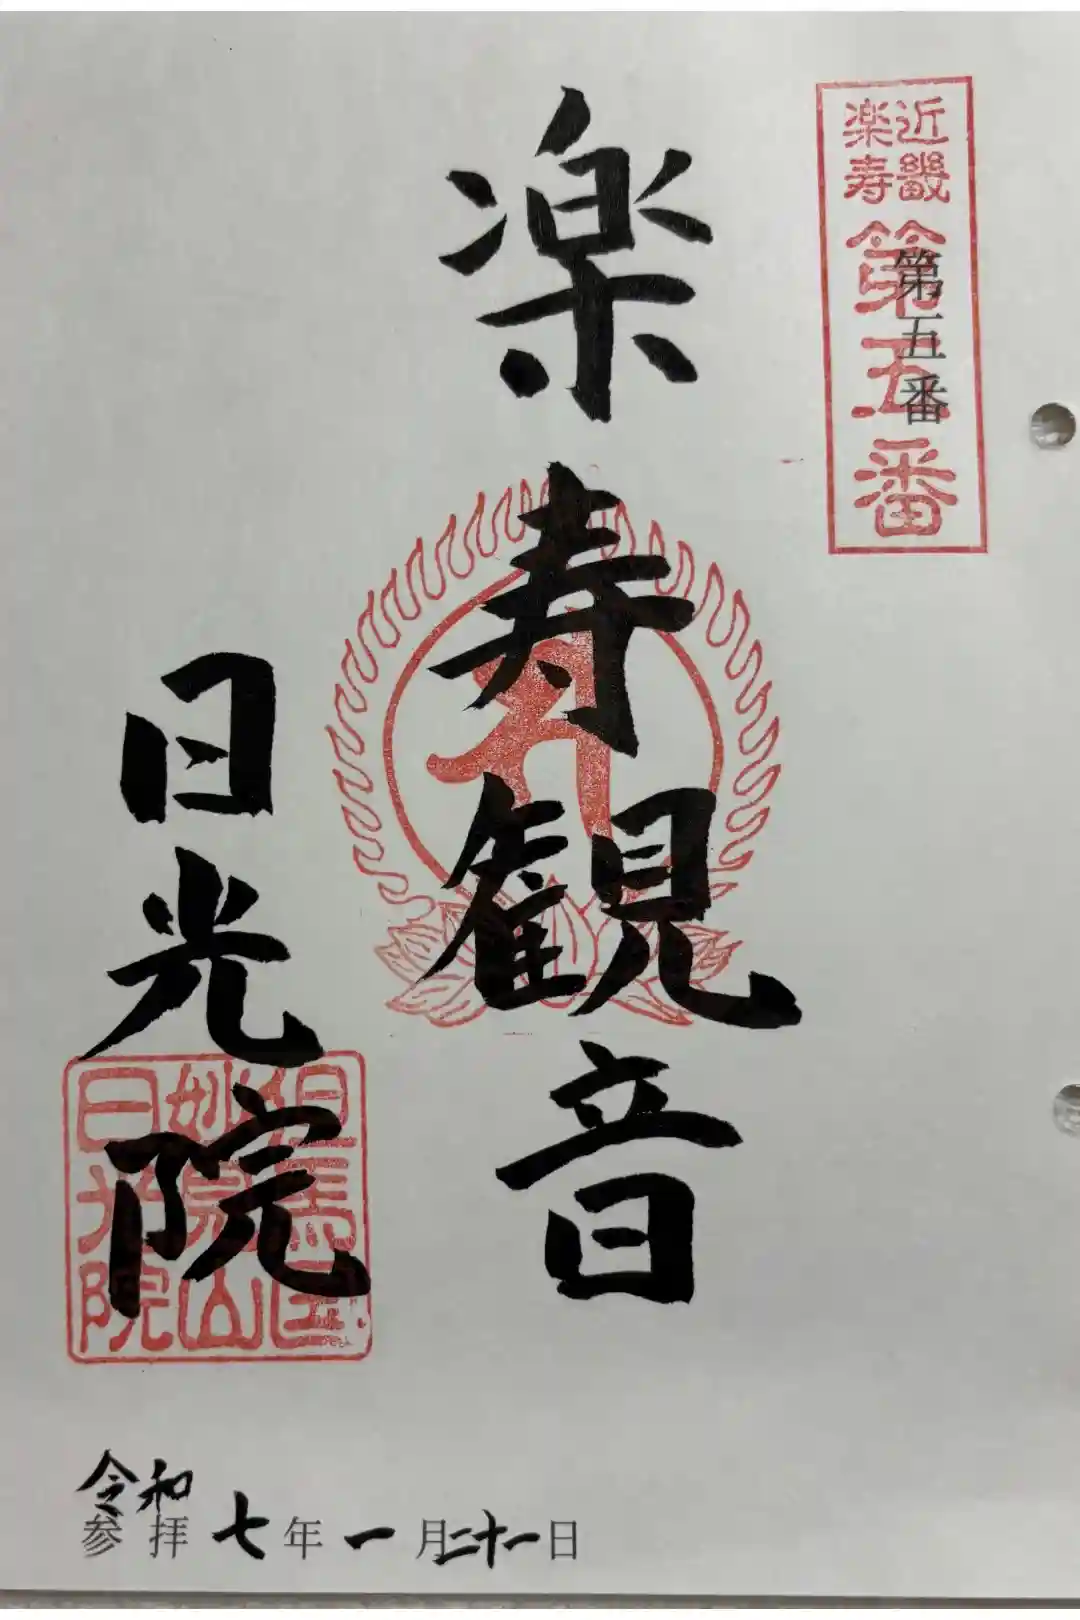 近畿
楽寿
第五番
第五番
楽寿観音
日光院
但馬国
妙見山
日光院
令和
参拝 七年 一月二十一日